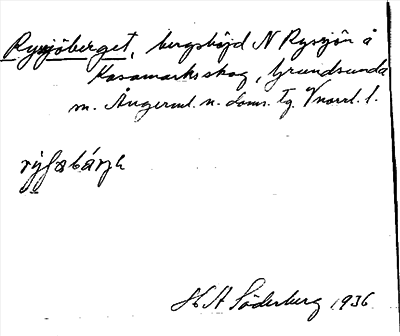 Rysjöberget, bergshöjd N Rysjön å
Kasamarks skog, Grundsunda
m. Ångerml. n. doms. Tg. Vnorrl. l.
H A Söderberg 1936.